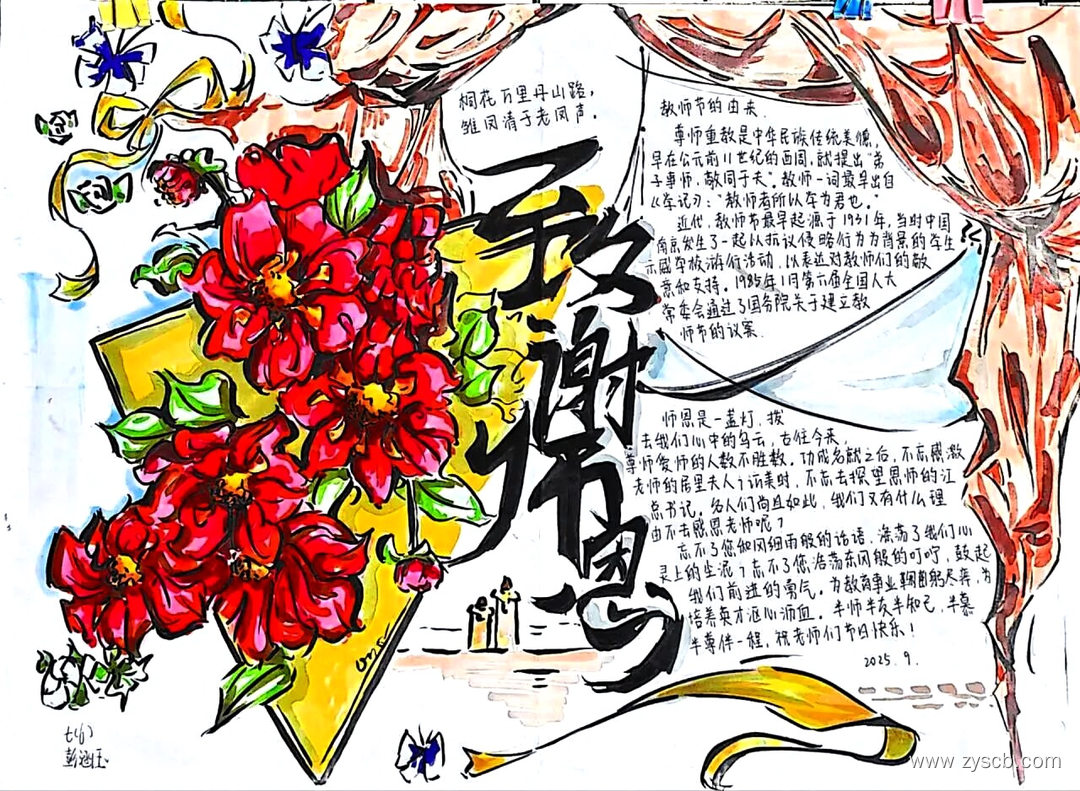 桐花万里丹山路，
雏凤清于老凤声。
致谢师恩
教师节的由来
尊师重教是中华民族传统美德，
早在公元前11世纪的西周，就提出“弟
子事师，敬同于父”。教师一词最早出自
《学记》：“教师者所以学为君也。”
近代，教师节最早起源于1931年，当时中国
南京发生了一起以抗议侵略行为为背景的学生
示威学校游行活动，以表达对教师们的敬
意和支持。1985年1月第六届全国人大
常委会通过了国务院关于建立教
师节的议案。
师恩是一盏灯，拨
去我们心中的乌云，古往今来，
尊师爱师的人数不胜数。功成名就之后，不忘感激
老师的居里夫人；访美时，不忘去探望恩师的江
总书记。名人们尚且如此，我们又有什么理
由不去感恩老师呢？
忘不了您和风细雨般的话语，涤荡了我们心
灵上的尘泥；忘不了您浩荡东风般的叮咛，鼓起
我们前进的勇气。为教育事业鞠躬尽瘁，为
培养英才沤心沥血。半师半友半知己，半慕
半尊伴一程，祝老师们节日快乐！
2025.9.
七(6)
www.zyscb.com